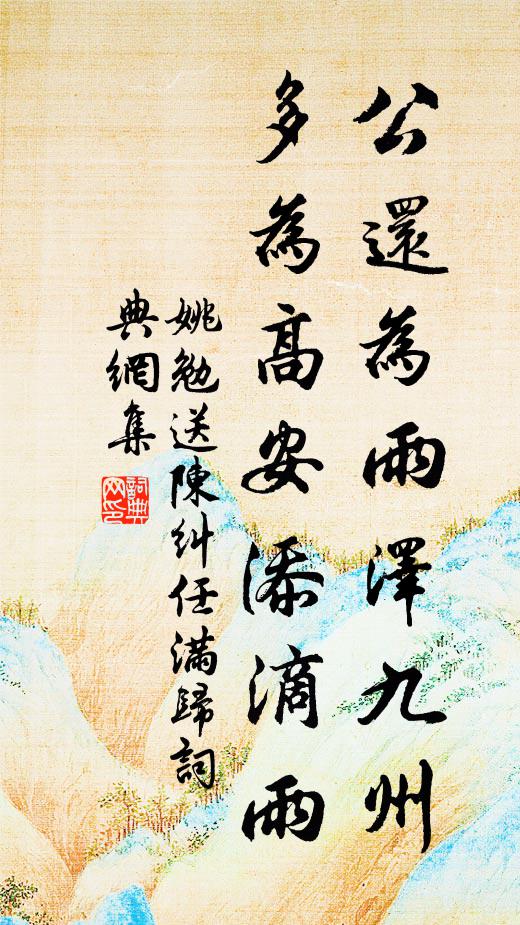 公還為雨澤九州
多為高安添滴雨
姚勉送陳糾任滿歸詞
典網集
詞典網印